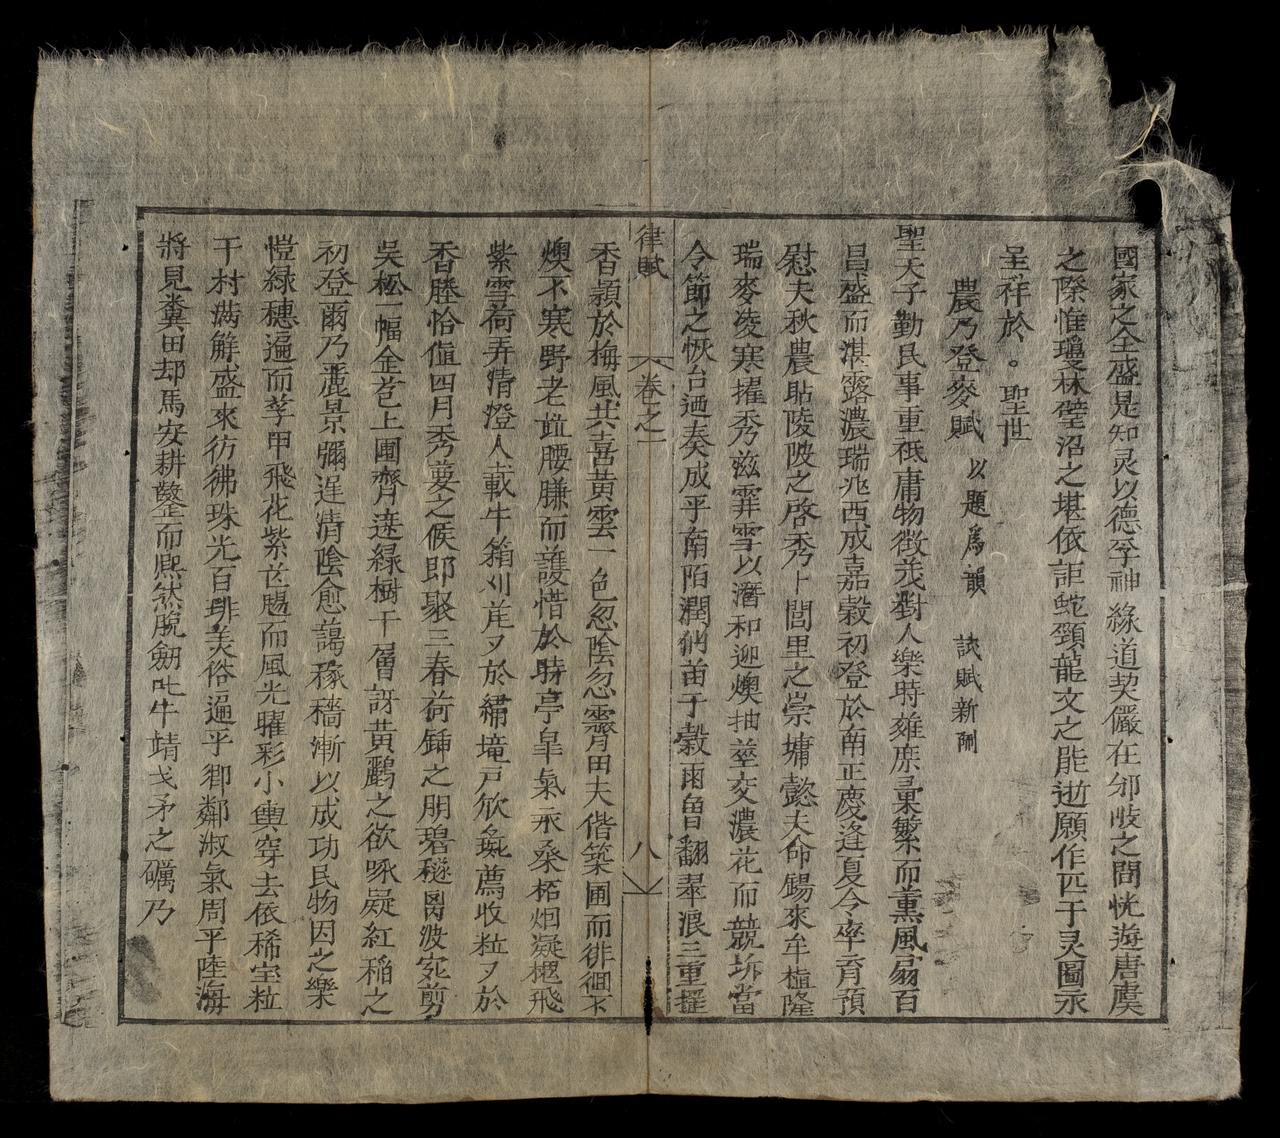 國家之全盛是知灵以德孚神緣道契儼在邠岐之間恍遊唐虞
之際惟瓊林壁沼之堪依詎蛇頸龍文之能逝願作匹于灵圖永
呈祥於。聖世
農乃登麥賦 以題為韻 試賦新刪
聖天子勤民事重祇庸物徵茂對人樂時雍庶彚繁而薰風扇百
昌盛而湛露濃瑞兆西成嘉穀初登於南正慶逢夏令率育預
慰夫秋農貼陵陂之啓秀卜閭里之崇墉懿夫命錫來牟植隆
瑞麥凌寒擢秀滋霏雪以潛和迎燠抽莖交濃花而競坼當
令節之恢台迺奏成乎南陌潤俏苗于穀雨 翻翠浪三重搖
律賦 卷之一 八
香潁於梅風共喜黃雲一色忽陰忽霽田夫偕築圃而徘徊不
燠不寒野老 腰鐮而護惜於時亭皐氣 桑柘烟凝 飛
紫雪荷弄清澄人載牛箱刈 又於繡壠戸欣 薦收粒又於
香塍恰值四月秀葽之候即聚三春荷鍤之朋碧穟 波 剪
吳松一幅金苞上圃齊連綠樹千層訝黃鸝之欲啄疑紅稲之
初登爾乃麗景彌遲清陰愈藹稼穡漸以成功民物因之樂
愷緑穗遍而莩甲飛花紫芒賜而風光曜彩小輿穿去依稀宝粒
千村满觧盛來彷彿珠光百琲美俗遍乎鄉鄰淑氣周乎陸海
將見糞田却馬安耕鑿而熙然脫劒叱牛靖戈矛之礪乃